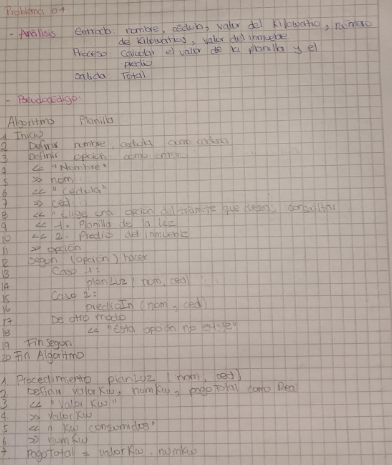 Problema 04
- Análisis Entrada nombre, cédula, valor del kilovatio, número
de kilovatios, valor del inmueble
Proceso Calcular el valor de la planilla y el
predio
Salida Total
- Pseudocódigo
Algoritmo Planilla
1 Inicio
2 Definir nombre cedula como cadena
3 Definir opcion como
4 << "Nombre"
5 >> nom
6 << "Cedula"
7 >> ced
8 << "Elija una opcion del tramite que consultar
9 << 1. Planilla de la luz
10 << 2. Predio del inmueble
11 >> opción
12 Segun (opcion) hacer
13 Caso 1:
14 planLuz (nom, ced)
15 Caso 2:
16 predioIn (nom, ced)
17 De otro modo
18 << "Esta opción no existe"
19 Fin Segun
20 Fin Algoritmo
1 Procedimiento planLuz (nom, ced)
2 Definir valorKw, numKw, pagoTotal como
3 << "Valor Kw"
4 >> valorKw
5 << "n Kw consumidos"
6 >> numKw
7 PagoTotal = valorKw . numKw